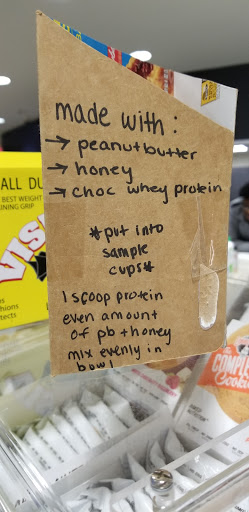 made with:
→ peanutbutter
→ honey
→ choc whey protein
*put into
sample
cups*
1 scoop protein
even amount
of pb + honey
mix evenly in
bowl
ALL DU
BEST WEIGHT
NING GRIP
VIS
the
COMPLE
Cookie